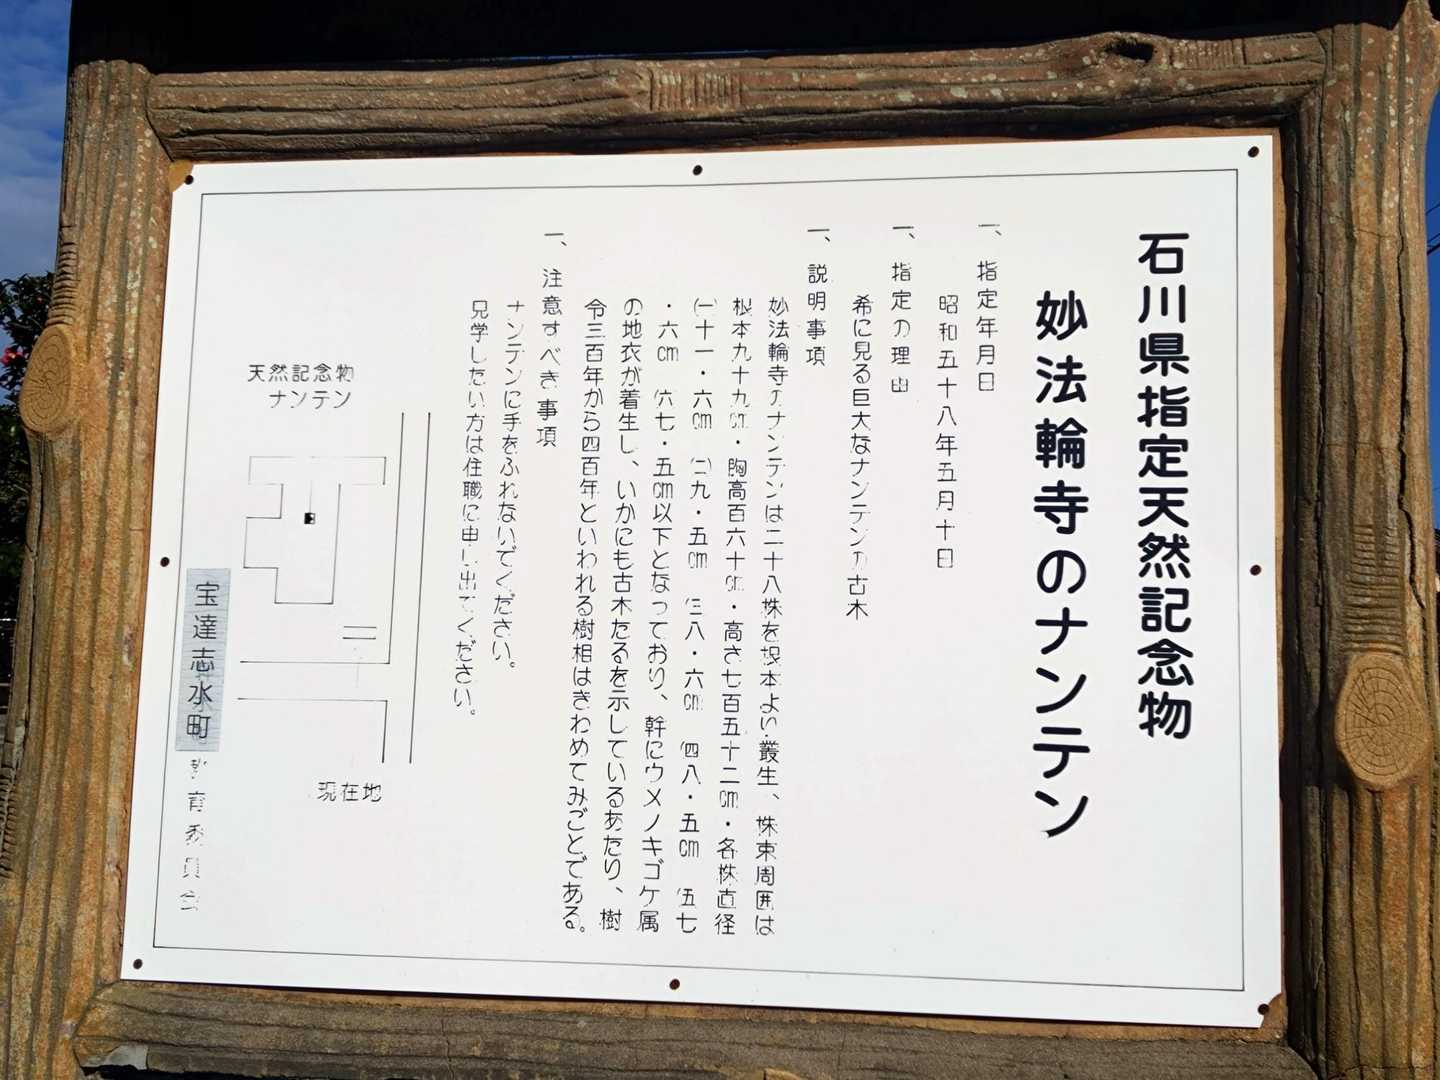 石川県指定天然記念物
妙法輪寺のナンテン
一、指定年月日
昭和五十八年五月十日
一、指定の理由
希に見る巨大なナンテンの古木
一、説明事項
妙法輪寺のナンテンは二十八株を根本より叢生、株束周囲は
根本九十九cm・胸高百六十cm・高さ七百五十二cm・各株直径
㈠十一・六cm ㈡九・五cm ㈢八・六cm ㈣八・五cm ㈤七
・六cm ㈥七・五cm以下となっており、幹にウメノキゴケ属
の地衣が着生し、いかにも古木たるを示しているあたり、樹
令三百年から四百年といわれる樹相はきわめてみごとである。
一、注意すべき事項
ナンテンに手をふれないでください。
見学したい方は住職に申し出てください。
天然記念物
ナンテン
現在地
宝達志水町教育委員会